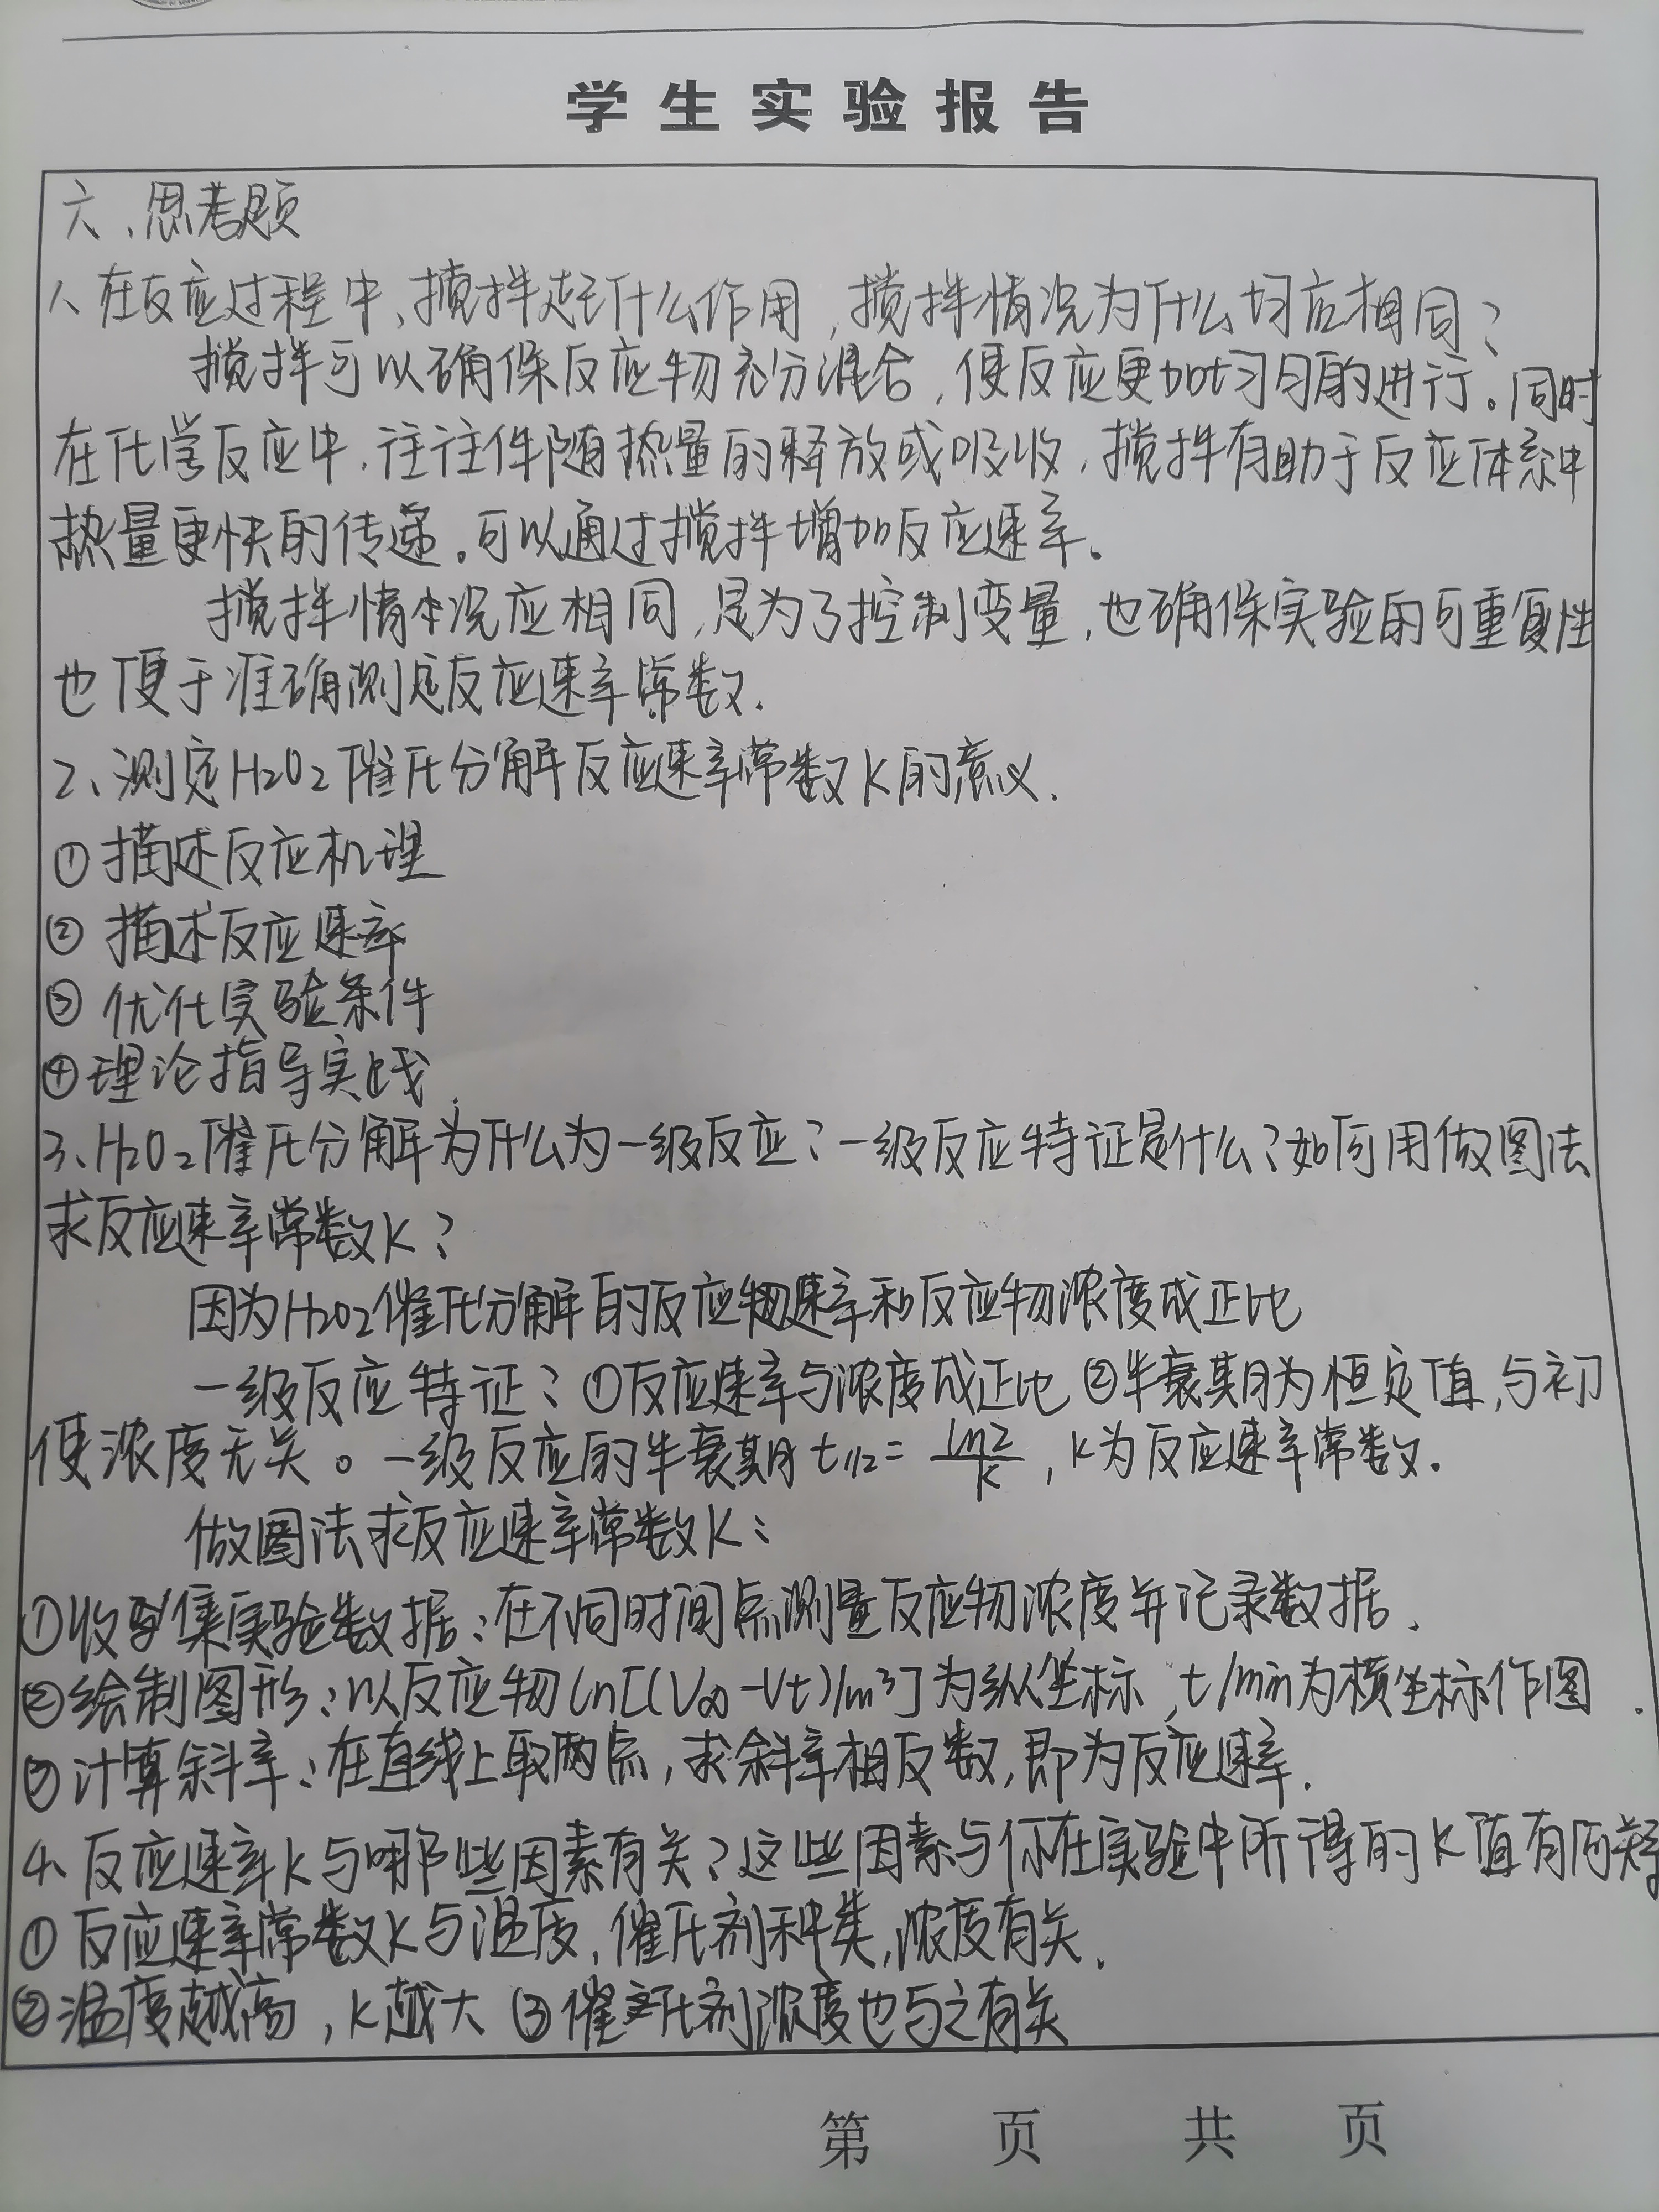 学生实验报告
六、思考题
1、在反应过程中,搅拌起什么作用,搅拌情况为什么均应相同?
搅拌可以确保反应物充分混合,使反应更加均匀的进行。同时
在化学反应中,往往伴随热量的释放或吸收,搅拌有助于反应体系中
热量更快的传递。可以通过搅拌增加反应速率。
搅拌情况应相同,是为了控制变量,也确保实验的可重复性
也便于准确测定反应速率常数.
2、测定H2O2催化分解反应速率常数K的意义.
①描述反应机理
②描述反应速率
③优化实验条件
④理论指导实践.
3、H2O2催化分解为什么为一级反应?一级反应特征是什么?如何用做图法
求反应速率常数K?
因为H2O2催化分解的反应物速率和反应物浓度成正比
一级反应特征:①反应速率与浓度成正比②半衰期为恒定值,与初
使浓度无关。一级反应的半衰期t1/2=ln2/k,K为反应速率常数.
做图法求反应速率常数K:
①收集实验数据:在不同时间点测量反应物浓度并记录数据.
②绘制图形:以反应物ln[(V∞-Vt)/m³]为纵坐标,t/min为横坐标作图.
③计算斜率:在直线上取两点,求斜率相反数,即为反应速率.
4、反应速率K与哪些因素有关?这些因素与你在实验中所得的K值有何关系
①反应速率常数K与温度,催化剂种类,浓度有关.
②温度越高,K越大③催化剂浓度也与之有关
第 页 共 页